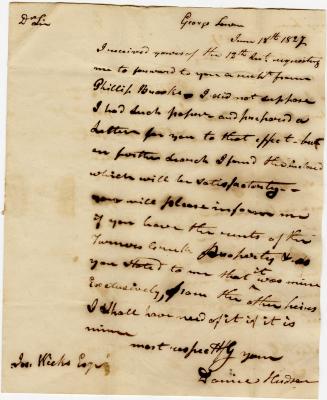 Dr Sir George Town
June 18th 1827
I received yours of the 12th Inst requesting
me to forward to you a from
Phillip I did not suppose
I had such paper and prepared a
Letter for you to that effect - but
on further search I found the inclosed
which will be satisfactory -
you will please inform me
if you have the rents of the
Turners Creek Property & as
you stated to me that it was mine
Exclusively, from the other heirs
I shall have need of it if it is
mine
most respectfly your
Jos. Wickes Esqr